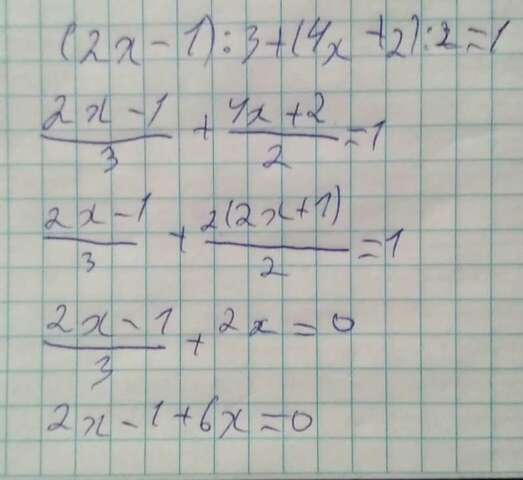 (2x-1):3+(4x+2):2=1
\frac{2x-1}{3} + \frac{4x+2}{2} = 1
\frac{2x-1}{3} + \frac{2(2x+1)}{2} = 1
\frac{2x-1}{3} + 2x = 0
2x-1+6x=0